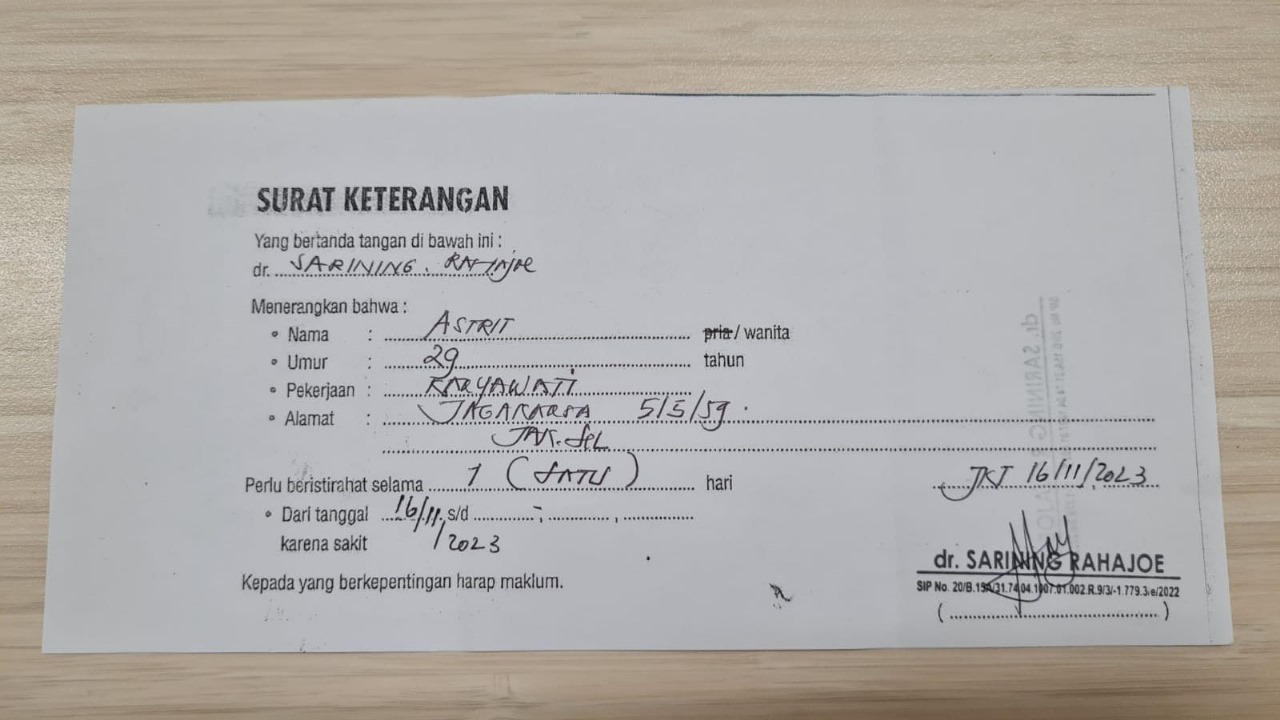 SURAT KETERANGAN
Yang bertanda tangan di bawah ini :
dr. SARINING. RAHAJOE
Menerangkan bahwa :
• Nama : ASTRIT pria / wanita
• Umur : 29 tahun
• Pekerjaan : KARYAWATI
• Alamat : JAGAKARSA 5/5/59.
JAK. SEL
Perlu beristirahat selama 1 (SATU) hari
JKT 16/11/2023
• Dari tanggal 16/11 s/d - ,
karena sakit /2023
Kepada yang berkepentingan harap maklum.
dr. SARINING RAHAJOE
SIP No. 20/B.15A/31.74.04.1007.01.002.R.9/3/-1.779.3/e/2022
(                    )